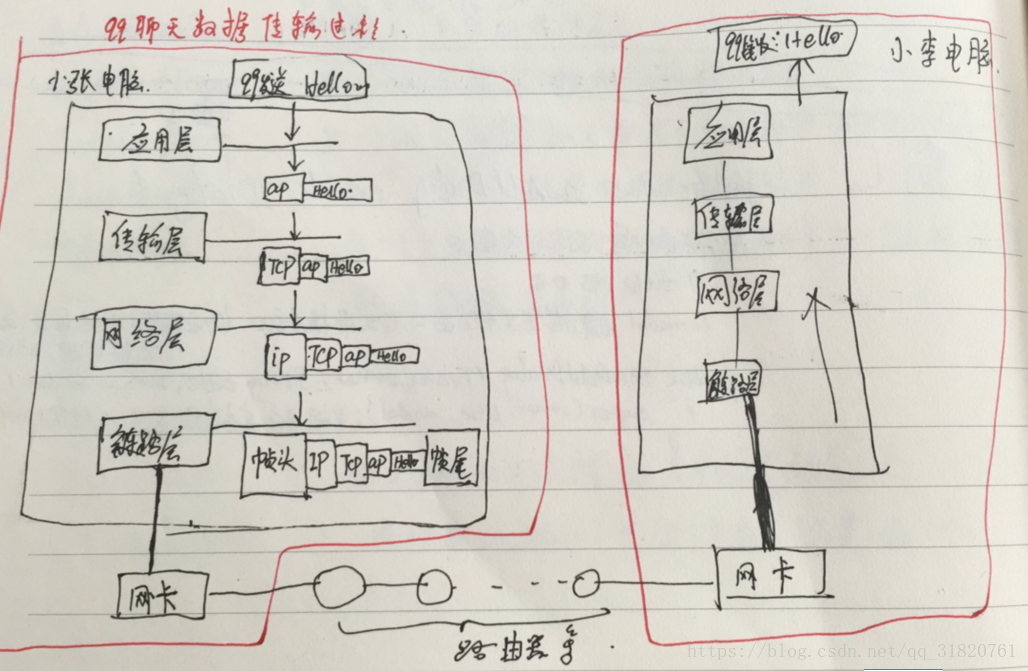 qq聊天数据传输过程
小张电脑
qq发送 Hello
应用层
ap Hello
传输层
TCP ap Hello
网络层
ip TCP ap Hello
链路层
帧头 IP Tcp ap Hello 帧尾
网卡
路由器等
小李电脑
Hello
应用层
传输层
网络层
链路层
网卡
https://blog.csdn.net/qq_31820761